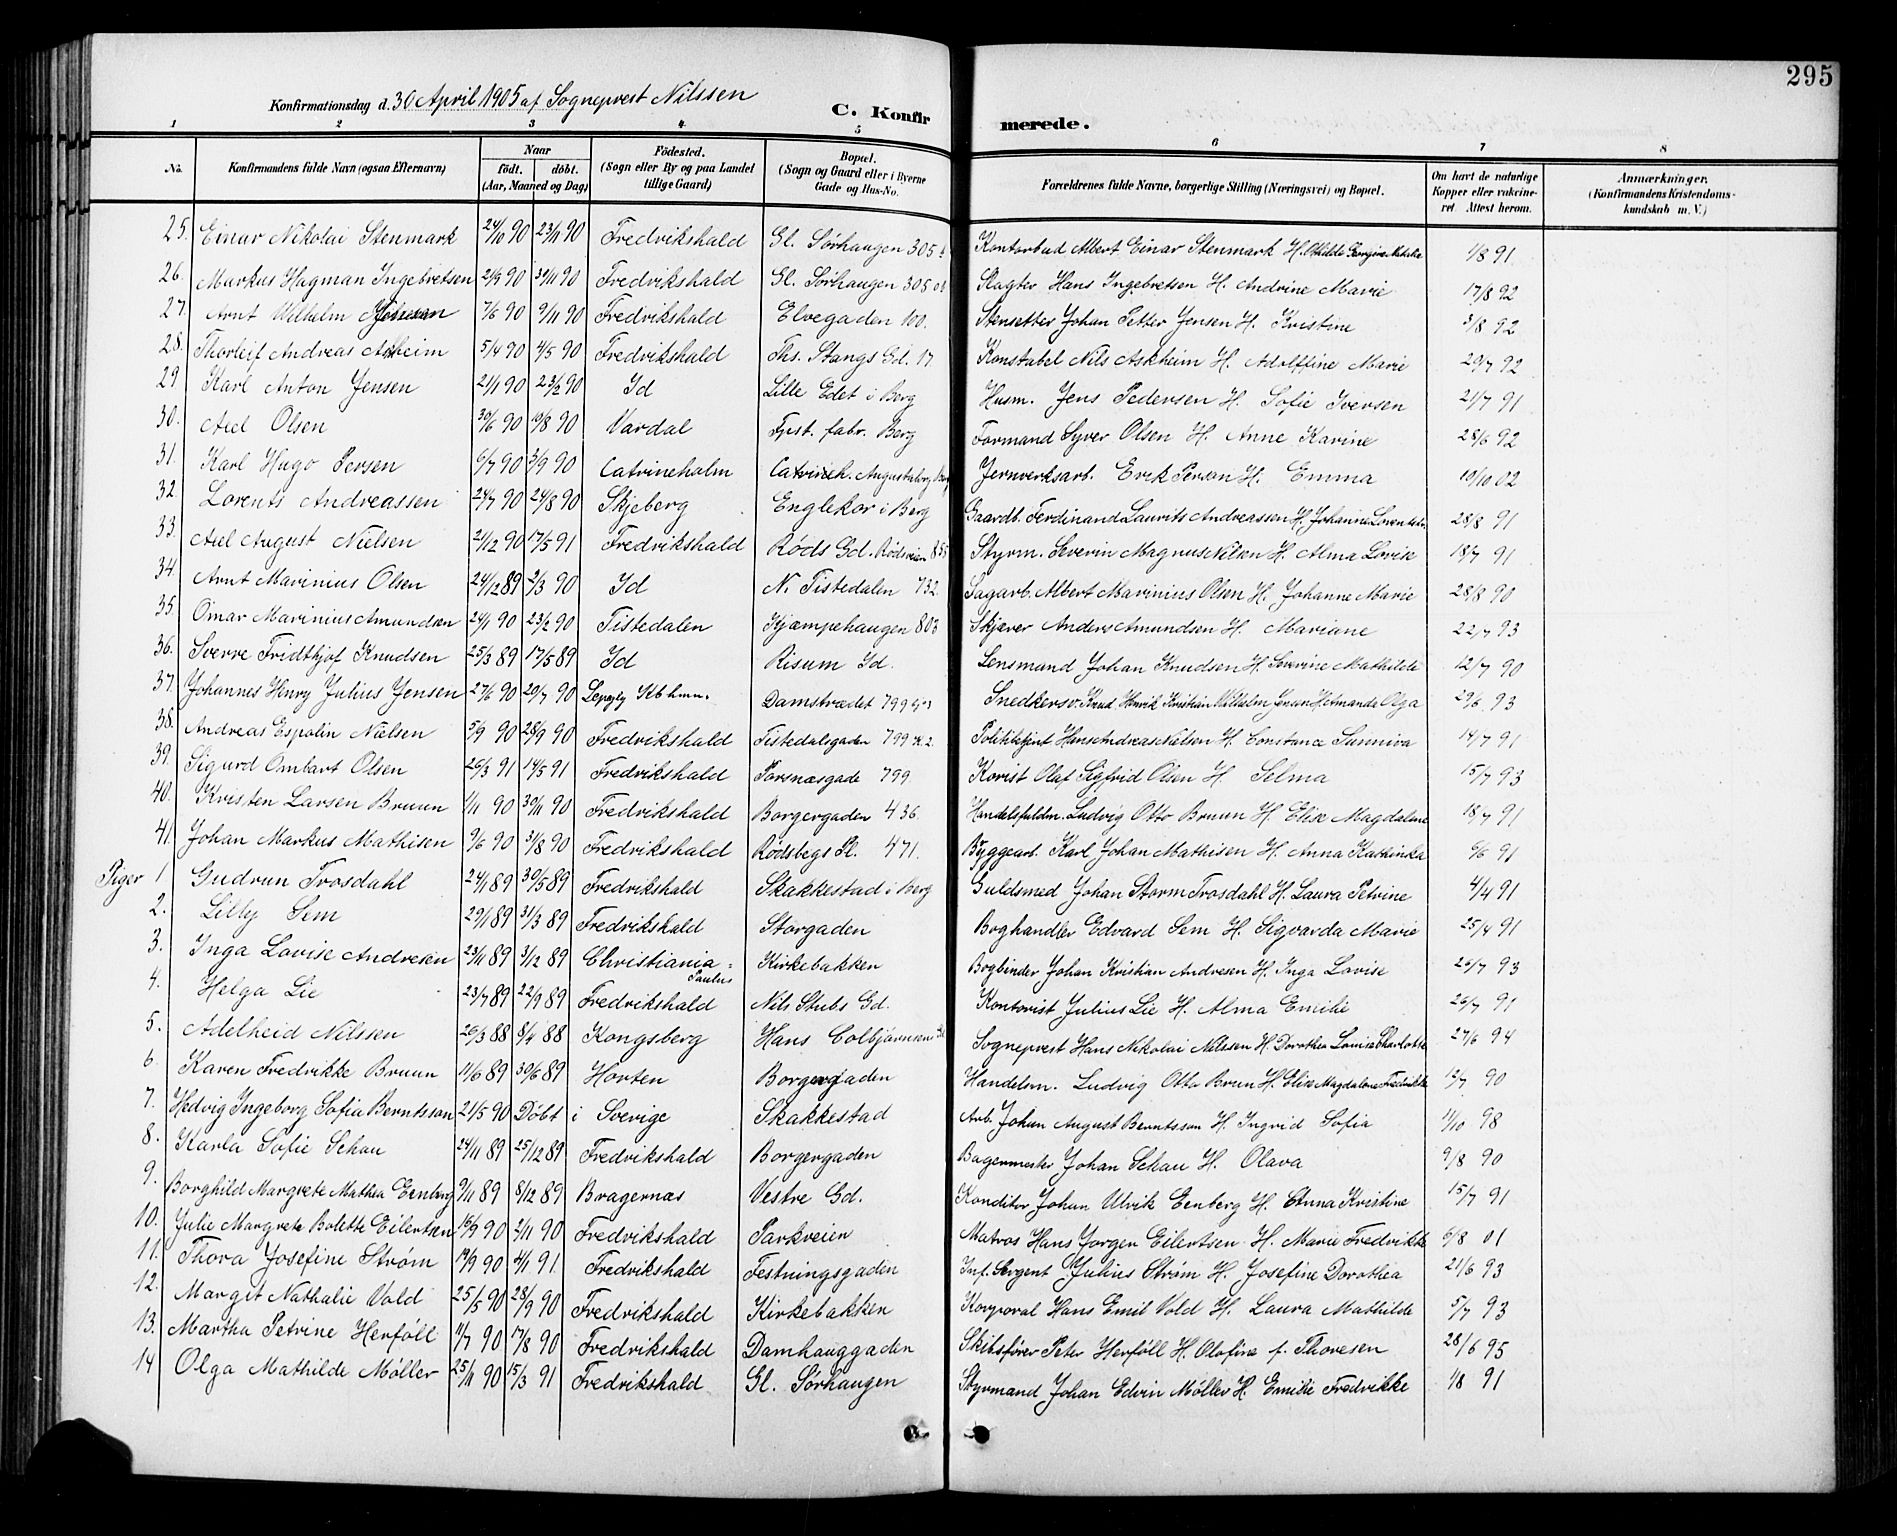 295
Konfirmationsdag d. 30 April 1905 af Sogneprest Nilssen
C. Konfirmerede.
1 2 3 4 5 6 7 8
No. Konfirmandens fulde Navn (ogsaa Efternavn) Naar født. døbt. (Aar, Maaned og Dag) Födested. (Sogn eller By og paa Landet tillige Gaard) Bopæl. (Sogn og Gaard eller i Byerne Gade og Hus-No. Forældrenes fulde Navne, borgerlige Stilling (Næringsvei) og Bopæl. Om havt de naturlige Kopper eller vaccineret. Attest herom. Anmærkninger. (Konfirmandens Kristendomskundskab m. V.)
25. Einar Nikolai Stenmark 24/10 90 23/11 90 Fredrikshald Gl. Sørhaugen 305 Kontorbud Albert Einar Stenmark H. Othilde Georgine 1/8 91
26. Markus Hagman Ingebretsen 21/9 90 30/11 90 Fredrikshald Gl. Sørhaugen 305 Slagter Hans Ingebretsen H. Andrine Marie 17/8 92
27. Arnt Wilhelm 7/6 90 9/11 90 Fredrikshald Elvegaden 100. Stensetter Johan Petter Jensen H. Kristine 3/8 92
28. Thorleif Andreas Askheim 5/4 90 4/5 90 Fredrikshald Ths. Stangs Gd. 17 Konstabel Nils Askheim H. Adolffine Marie 29/7 92
29 Karl Anton Jensen 21/1 90 23/2 90 Id Lille Edet i Berg Husm. Jens Pedersen H. Sofie Iversen 21/7 91
30. Axel Olsen 30/6 90 10/8 90 Vardal Fyrst. fabr. Berg Formand Syver Olsen H. Anne Karine 28/6 92
31. Karl Hugo Persen 6/7 90 3/9 90 Catrineholm Catrineh. Augustaborg Berg Jernverksarb. Erik Person H. Emma 10/10 02
32 Lorents Andreassen 24/7 90 24/8 90 Skjeberg Englekor i Berg Gaardb. Ferdinand Laurits Andreassen H. Johanne 28/8 91
33. Axel August Nielsen 21/12 90 17/5 91 Fredrikshald Røds Gd. Rødsveien 855 Styrm. Severin Magnus Nilsen H. Alma Lovise 18/7 91
34. Arnt Marinius Olsen 24/12 89 2/3 90 Id N. Tistedalen 732 Sagarb. Albert Marinius Olsen H. Johanne Marie 28/8 90
35. Omar Marinius Amundsen 24/1 90 23/2 90 Tistedalen Kjæmpehaugen 803 Skjærer Anders Amundsen H. Mariane 22/7 93
36. Sverre Fridthjof Knudsen 25/3 89 17/5 89 Id Risum Id. Lensmand Johan Knudsen H. Severine Mathilde 12/7 90
37. Johannes Henry Julius Jensen 27/6 90 20/7 90 Kbhvn. Damstrædet 799 Snedkersv. Knud Henrik Kristian Vilhelm Jensen H. Amanda Olga 29/6 93
38. Andreas Espolin Nielsen 5/9 90 28/9 90 Fredrikshald Tistedalsgaden 799 k. 2. Politibetjent Hans Andreas Nielsen H. Constance Sunniva 14/7 91
39. Sigurd Ombart Olsen 26/3 91 14/5 91 Fredrikshald Porsnæsgade 799 Korist Olaf Sigfrid Olsen H. Selma 15/7 93
40. Kristen Larsen Bruun 1/11 90 30/11 90 Fredrikshald Borgergaden 436. Handelsfuldm. Ludvig Otto Bruun H. Elise Magdalene 18/7 91
41. Johan Markus Mathisen 9/6 90 31/8 90 Fredrikshald Rødsbegs Pl. 471. Byggearb. Karl Johan Mathisen H. Anna Kathinka 6/6 91
Piger 1 Gudrun Trosdahl 24/1 89 30/5 89 Fredrikshald Skakkestad i Berg Guldsmed Johan Storm Trosdahl H. Laura Petrine 4/4 91
2. Lilly Sem 29/1 89 31/3 89 Fredrikshald Storgaden Boghandler Edvard Sem H. Sigvarda Marie 25/4 91
3. Inga Lovise Andresen 23/11 89 3/12 89 Christiania - Paulus Kirkebakken Bogbinder Johan Kristian Andresen H. Inga Lovise 25/7 93
4. Helga Lie 23/7 89 22/9 89 Fredrikshald Nils Stubs Gd. Kontorist Julius Lie H. Alma Emilie 26/7 91
5. Adelheid Nilssen 26/3 88 8/4 88 Kongsberg Hans Colbjørnsens Gd Sogneprest Hans Nikolai Nilssen H. Dorothea Louise Charlotte 27/6 94
6. Karen Fredrikke Bruun 11/6 89 30/6 89 Horten Borgergaden Handelsm. Ludvig Otto Brun H. Elise Magdalene Fredrikke 12/7 90
7. Hedvig Ingeborg Sofia Berntsson 21/5 90 Døbt i Sverige Skakkestad Arb. Johan August Berntsson H. Ingrid Sofia 11/10 98
8. Karla Sofie Schau 24/11 89 25/12 89 Fredrikshald Borgergaden Bagermester Johan Schau H. Olava 9/8 90
9. Borghild Margrete Mathea Eenberg 9/11 89 8/12 89 Bragernæs Vestre Gd. Konditor Johan Ulrik Eenberg H. Anna Kristine 15/7 91
10. Julie Margrete Bolette Eilertsen 16/9 90 2/11 90 Fredrikshald Parkveien Matros Hans Jørgen Eilertsen H. Marie Fredrikke 6/8 01
11. Thora Josefine Strøm 19/9 90 4/1 91. Fredrikshald Festningsgaden Inf. Sergent Julius Strøm H. Josefine Dorothea 21/6 93
12. Margit Nathalie Vold 25/5 90 28/9 90 Fredrikshald Kirkebakken Korporal Hans Emil Vold H. Laura Mathilde 5/7 93
13. Martha Petrine Herføll 11/7 90 17/8 90 Fredrikshald Damhauggaden Skibsfører Peter Herføll H. Olofine f. Thoresen 28/6 95
14 Olga Mathilde Møller 25/11 90 15/3 91 Fredrikshald Gl. Sørhaugen Styrmand Johan Edvin Møller H. Emilie Fredrikke 1/8 91